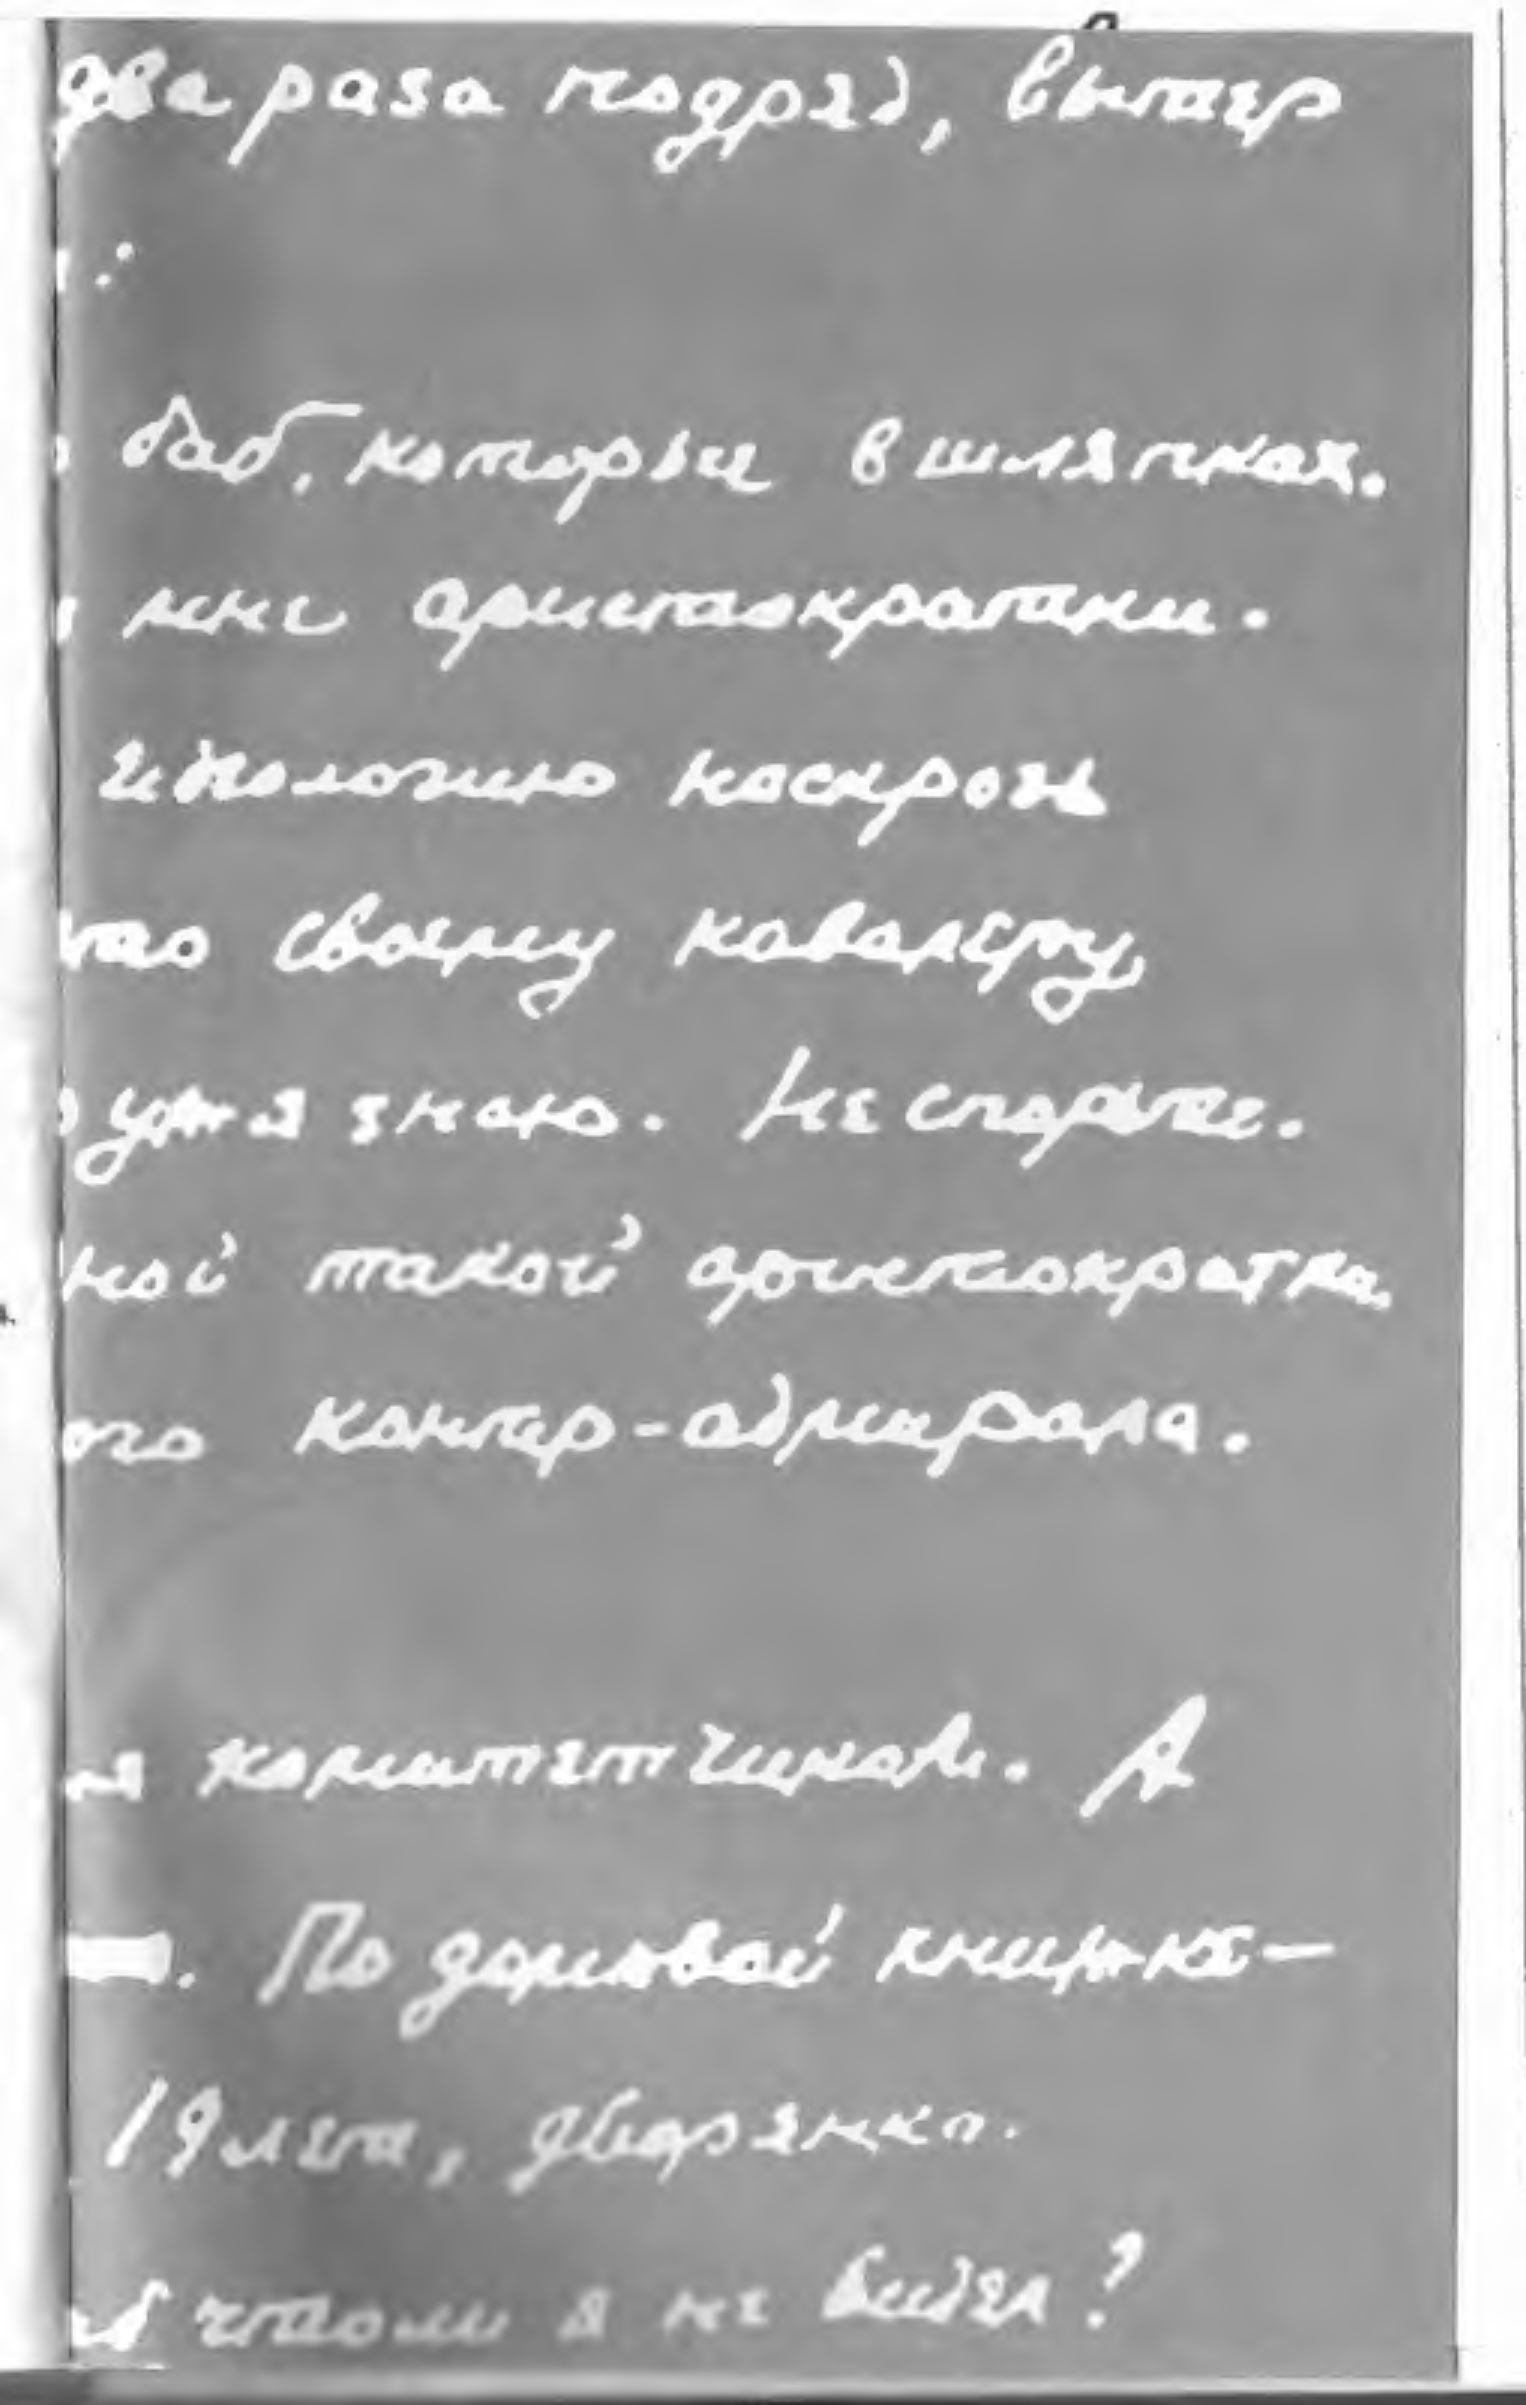 два раза подряд, вытер
:
баб, которые в шляпках.
мне аристократки.
идеологию наскрозь
своему кавалеру
уж я знаю. Не спорьте.
такой аристократка
контр-адмирала.
комитетчиков. А
. По домовой книжке —
19 лет, дворянка.
что ли я не видел?